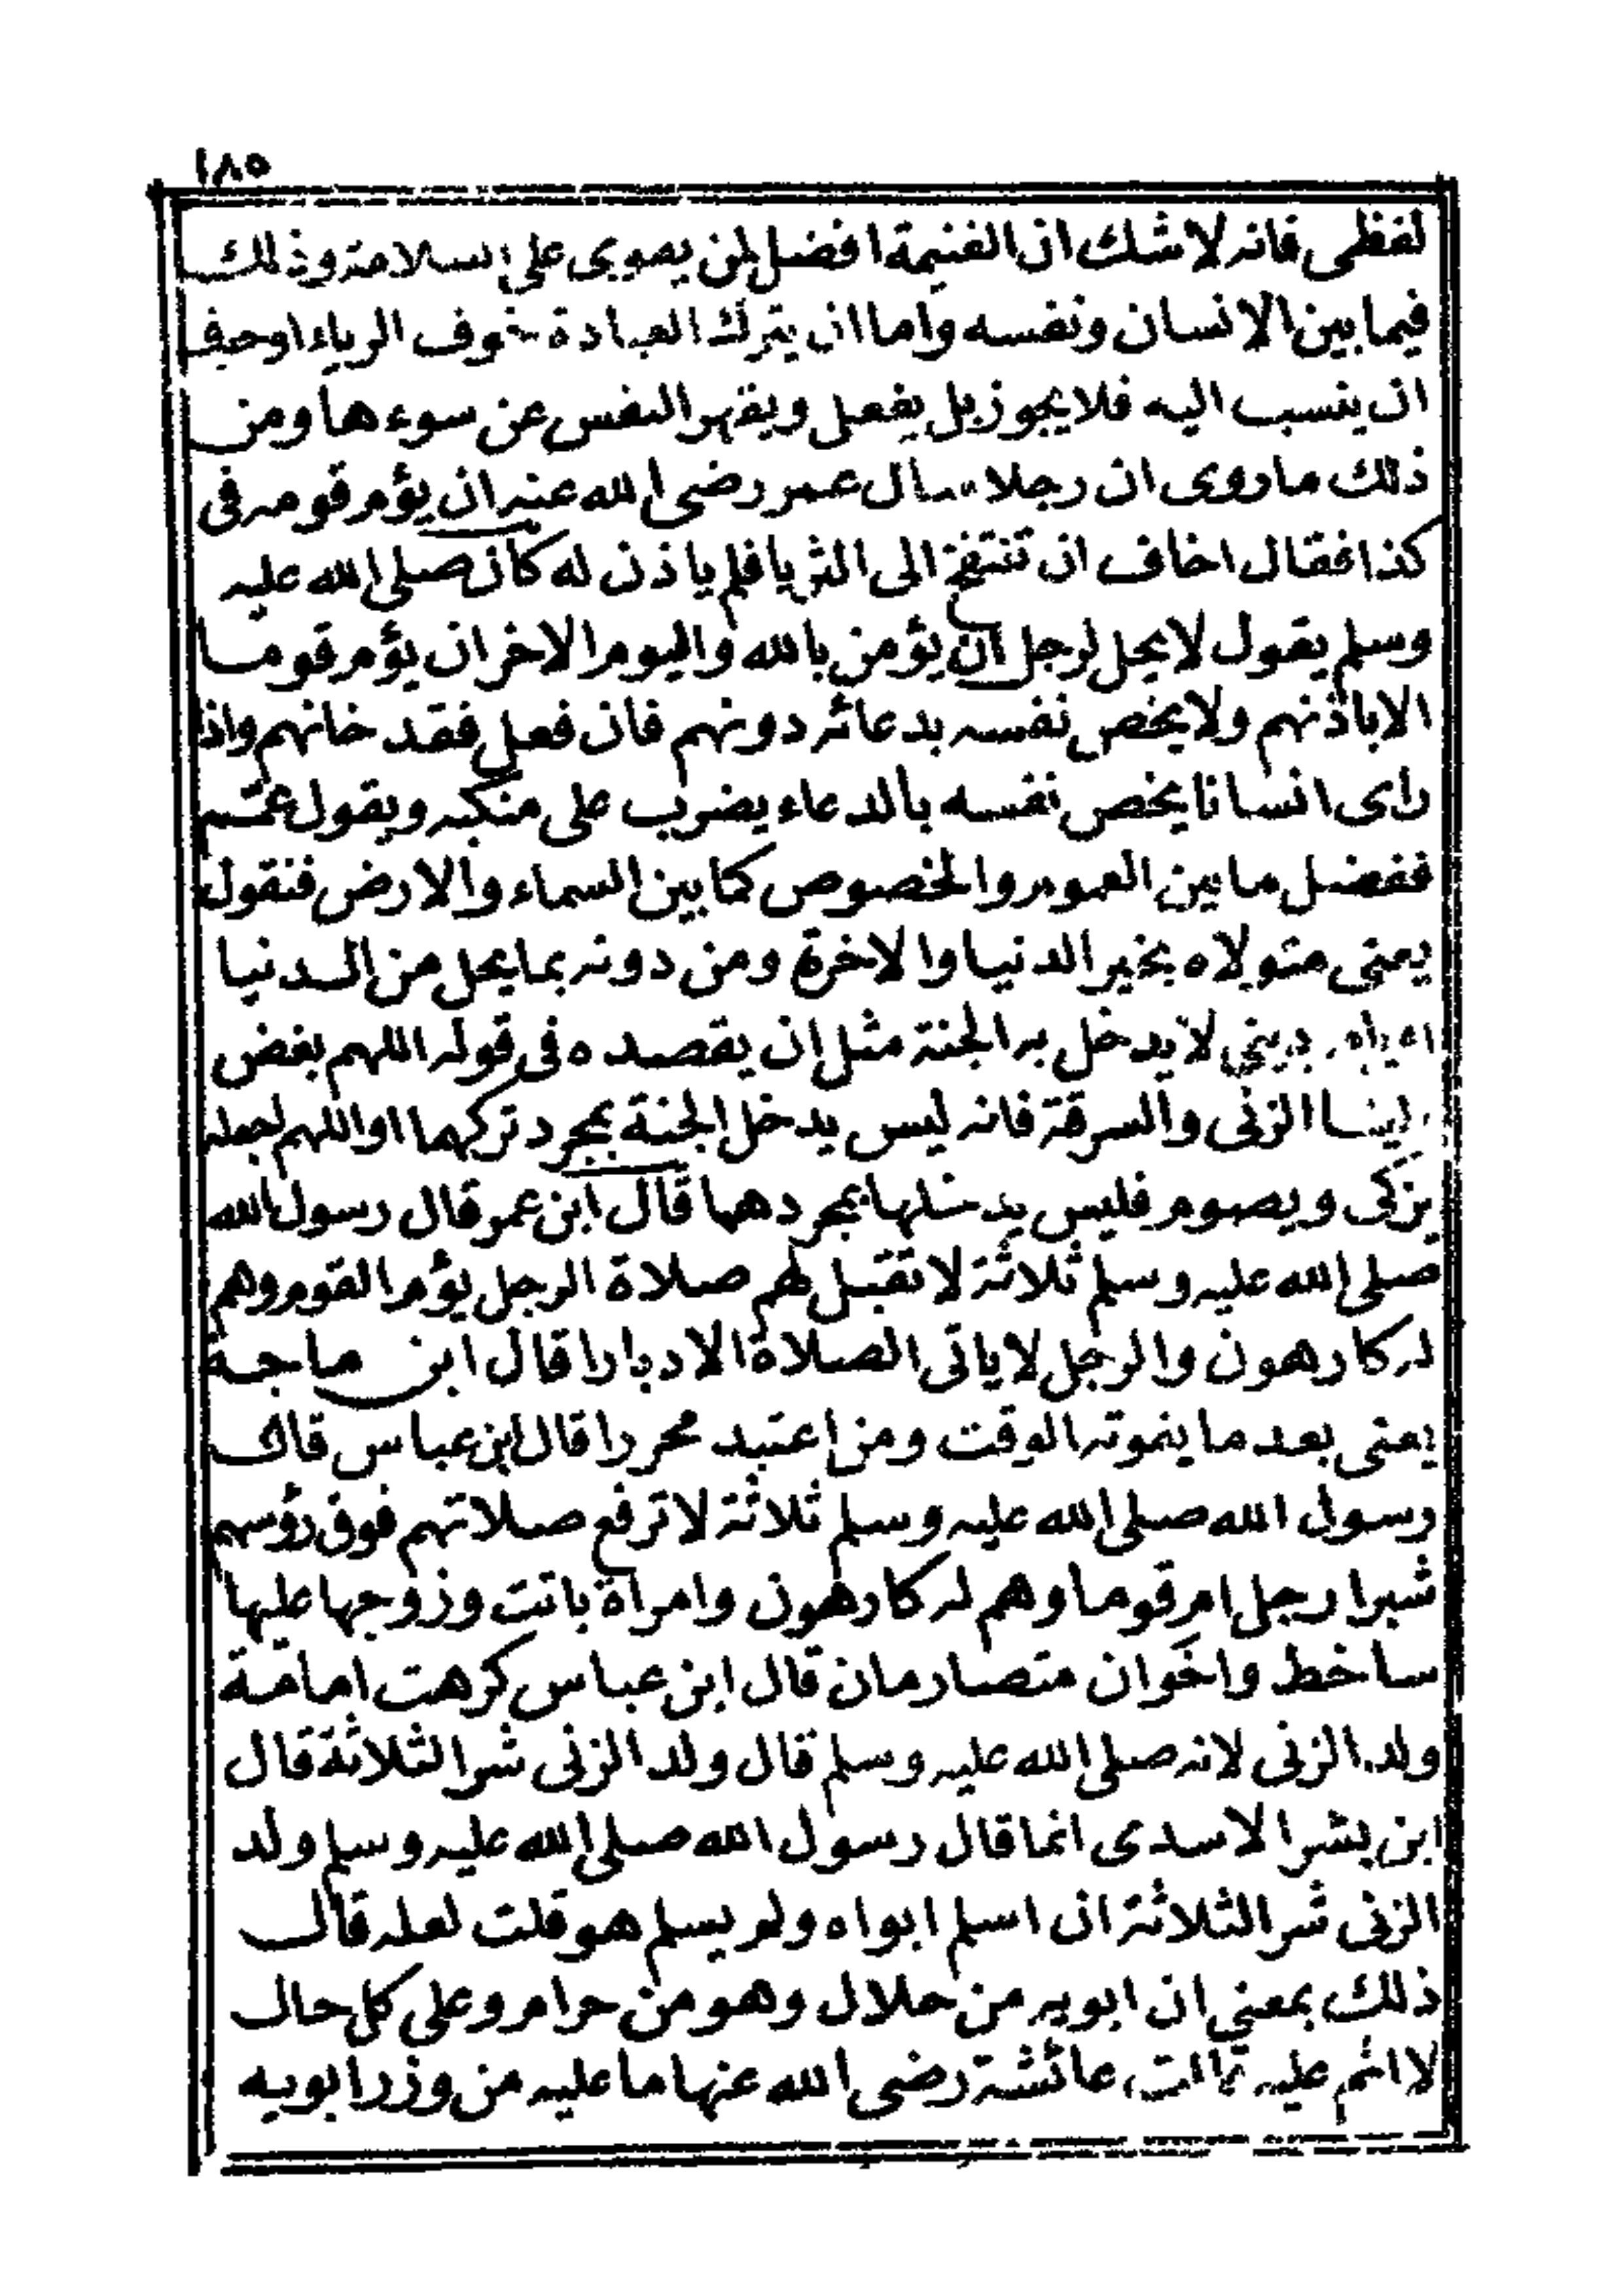 ١٨٥
لفظى فانه لا شك ان الغنيمة افضل لمن يقوى على السلامة وذلك
فيما بين الانسان ونفسه واما ان يترك العبادة خوف الرياء او خيف
ان ينسب اليه فلا يجوز بل يفعل ويقهر النفس عن سوء ها ومن
ذلك ما روى ان رجلا سأل عمر رضى الله عنه ان يؤم قومه فى
كذا فقال اخاف ان تنتفخ الى الثريا فلم ياذن له كان صلى الله عليه
وسلم يقول لا يحل لرجل ان يؤمن بالله واليوم الاخر ان يؤم قوما
الا باذنهم ولا يخص نفسه بدعائه دونهم فان فعل فقد خانهم واذا
راى انسانا يخص نفسه بالدعاء يضرب على منكبه ويقول عمّم
ففضل ما بين العموم والخصوص كما بين السماء والارض فنقول
يعنى متولاه بخير الدنيا والاخرة ومن دونه بما يحل من الدنيا
لا يدخل به الجنة مثل ان يقصده فى قوله اللهم بغض
الينا الزنى والسرقة فانه ليس يدخل الجنة بمجرد تركهما او اللهم اجعله
يزكى ويصوم فليس يدخلها بمجردهما قال ابن عمر قال رسول الله
صلى الله عليه وسلم ثلاثة لا تقبل لهم صلاة الرجل يؤم القوم وهم
له كارهون والرجل لا ياتى الصلاة الا دبارا قال ابن ماجة
يعنى بعد ما يفوته الوقت ومن اعتبد محررا قال ابن عباس قال
رسول الله صلى الله عليه وسلم ثلاثة لا ترفع صلاتهم فوق رؤسهم
شبرا رجل ام قوما وهم له كارهون وامراة باتت وزوجها عليها
ساخط واخوان متصارمان قال ابن عباس كرهت امامة
ولد الزنى لانه صلى الله عليه وسلم قال ولد الزنى شر الثلاثة قال
ابن بشر الاسدى انما قال رسول الله صلى الله عليه وسلم ولد
الزنى شر الثلاثة ان اسلم ابواه ولم يسلم هو قلت لعله قال
ذلك بمعنى ان ابويه من حلال وهو من حرام وعلى كل حال
لا اثم عليه قالت عائشة رضى الله عنها ما عليه من وزر ابويه